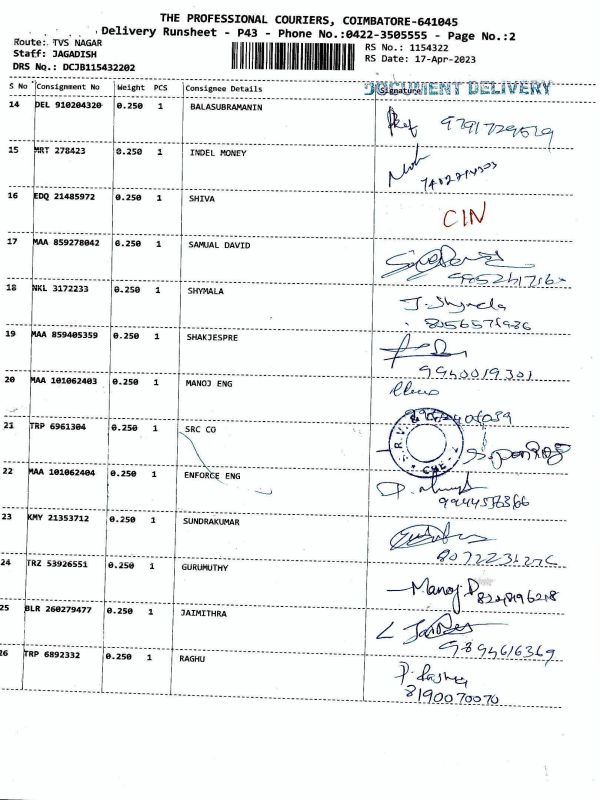 THE PROFESSIONAL COURIERS, COIMBATORE-641045
Delivery Runsheet - P43 - Phone No.:0422-3505555 - Page No.:2
Route: TVS NAGAR RS No.: 1154322
Staff: JAGADISH RS Date: 17-Apr-2023
DRS No.: DCJB115432202
S No Consignment No Weight PCS Consignee Details Signature DOCUMENT DELIVERY
14 DEL 910204320 0.250 1 BALASUBRAMANIN
15 MRT 278423 0.250 1 INDEL MONEY
16 EDQ 21485972 0.250 1 SHIVA
CIN
17 MAA 859278042 0.250 1 SAMUAL DAVID
18 NKL 3172233 0.250 1 SHYMALA
19 MAA 859405359 0.250 1 SHAKJESPRE
9940019301
20 MAA 101062403 0.250 1 MANOJ ENG
21 TRP 6961304 0.250 1 SRC CO
22 MAA 101062404 0.250 1 ENFORCE ENG
23 KMY 21353712 0.250 1 SUNDRAKUMAR
24 TRZ 53926551 0.250 1 GURUMUTHY
Manoj
25 BLR 260279477 0.250 1 JAIMITHRA
9894616369
26 TRP 6892332 0.250 1 RAGHU
8190070070